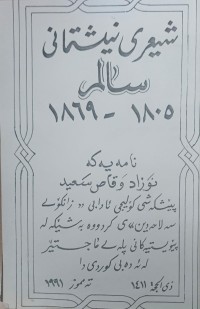 شیعری نیشتمانی
سالم
١٨٠٥ - ١٨٦٩
نامەیەکە
نۆزاد وقاص سعید
پێشکەشی کۆلیجی ئادابی زانکۆی
سەلاحەددینی کردووە بەشێکە لە
پێویستیەکانی پلەی ماجستێر
لە ئەدەبی کوردی دا
ذی الحجة ١٤١١ تەمموز ١٩٩١